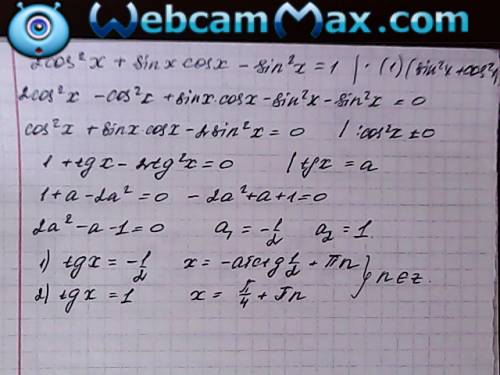 WebcamMax.com
2cos²x + sinx cosx - sin²x = 1 | · (1) (sin²x + cos²x)
2cos²x - cos²x + sinx·cosx - sin²x - sin²x = 0
cos²x + sinx·cosx - 2sin²x = 0 | :cos²x ≠ 0
1 + tgx - 2tg²x = 0 | tgx = a
1 + a - 2a² = 0 - 2a² + a + 1 = 0
2a² - a - 1 = 0 a₁ = -1/2 a₂ = 1.
1) tgx = -1/2 x = -arctg 1/2 + πn } n ∈ z.
2) tgx = 1 x = π/4 + πn